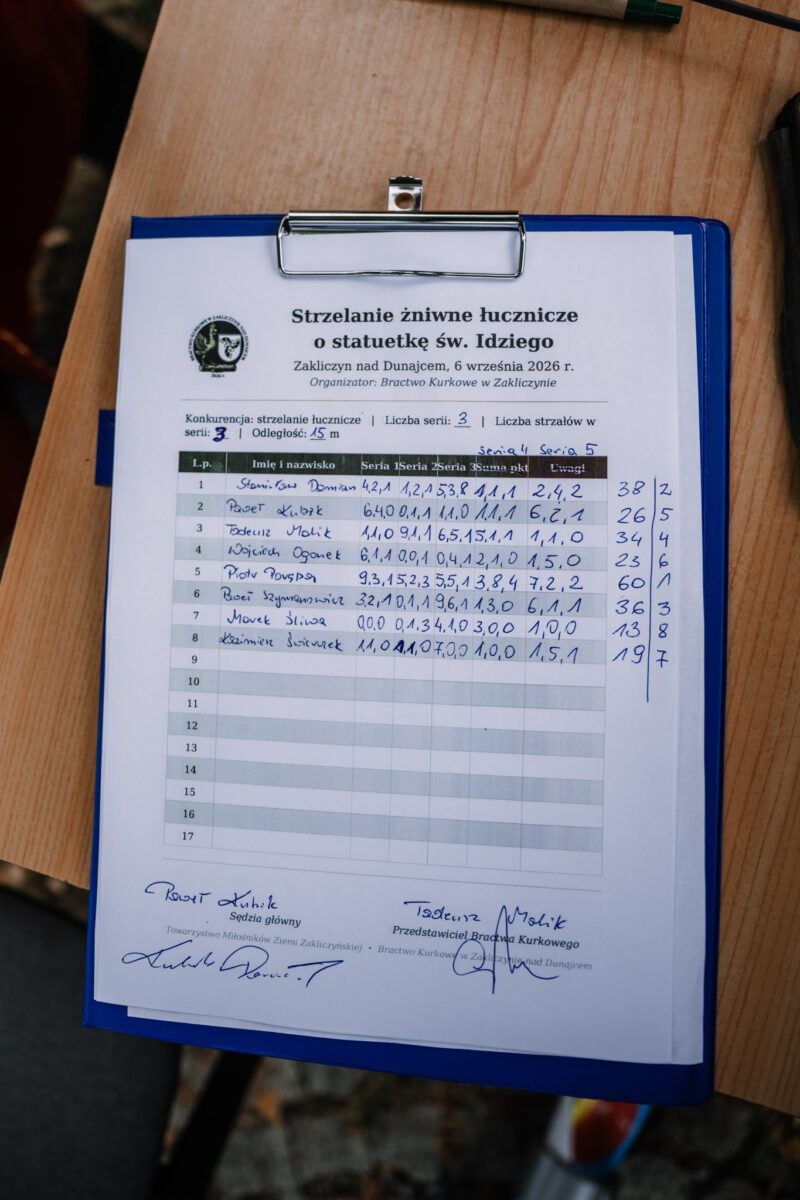 Strzelanie żniwne łucznicze
o statuetkę św. Idziego
Zakliczyn nad Dunajcem, 6 września 2026 r.
Organizator: Bractwo Kurkowe w Zakliczynie
BRACTWO KURKOWE W ZAKLICZYNIE NAD DUNAJCEM
2026 r.
Konkurencja: strzelanie łucznicze | Liczba serii: 3 | Liczba strzałów w
serii: 3 | Odległość: 15 m
Seria 4 Seria 5
L.p. Imię i nazwisko Seria 1 Seria 2 Seria 3 Suma pkt Uwagi
1 Stanisław Domian 4,2,1 1,2,1 5,3,8 1,1,1 2,4,2 38 2
2 Paweł Kubik 6,4,0 0,1,1 1,1,0 1,1,1 6,2,1 26 5
3 Tadeusz Malik 1,1,0 9,1,1 6,5,1 5,1,1 1,1,0 34 4
4 Wojciech Ogonek 6,1,1 0,0,1 0,4,1 2,1,0 1,5,0 23 6
5 Piotr 9,3,1 5,2,3 5,5,1 3,8,4 7,2,2 60 1
6 Paweł Szymanowicz 3,2,1 0,1,1 9,6,1 1,3,0 6,1,1 36 3
7 Marek Śliwa 0,0,0 0,1,3 4,1,0 3,0,0 1,0,0 13 8
8 Kazimierz Świerczek 1,1,0 1,1,0 7,0,0 1,0,0 1,5,1 19 7
9
10
11
12
13
14
15
16
17
Paweł Kubik Tadeusz Malik
Sędzia główny Przedstawiciel Bractwa Kurkowego
Towarzystwo Miłośników Ziemi Zakliczyńskiej • Bractwo Kurkowe w Zakliczynie nad Dunajcem